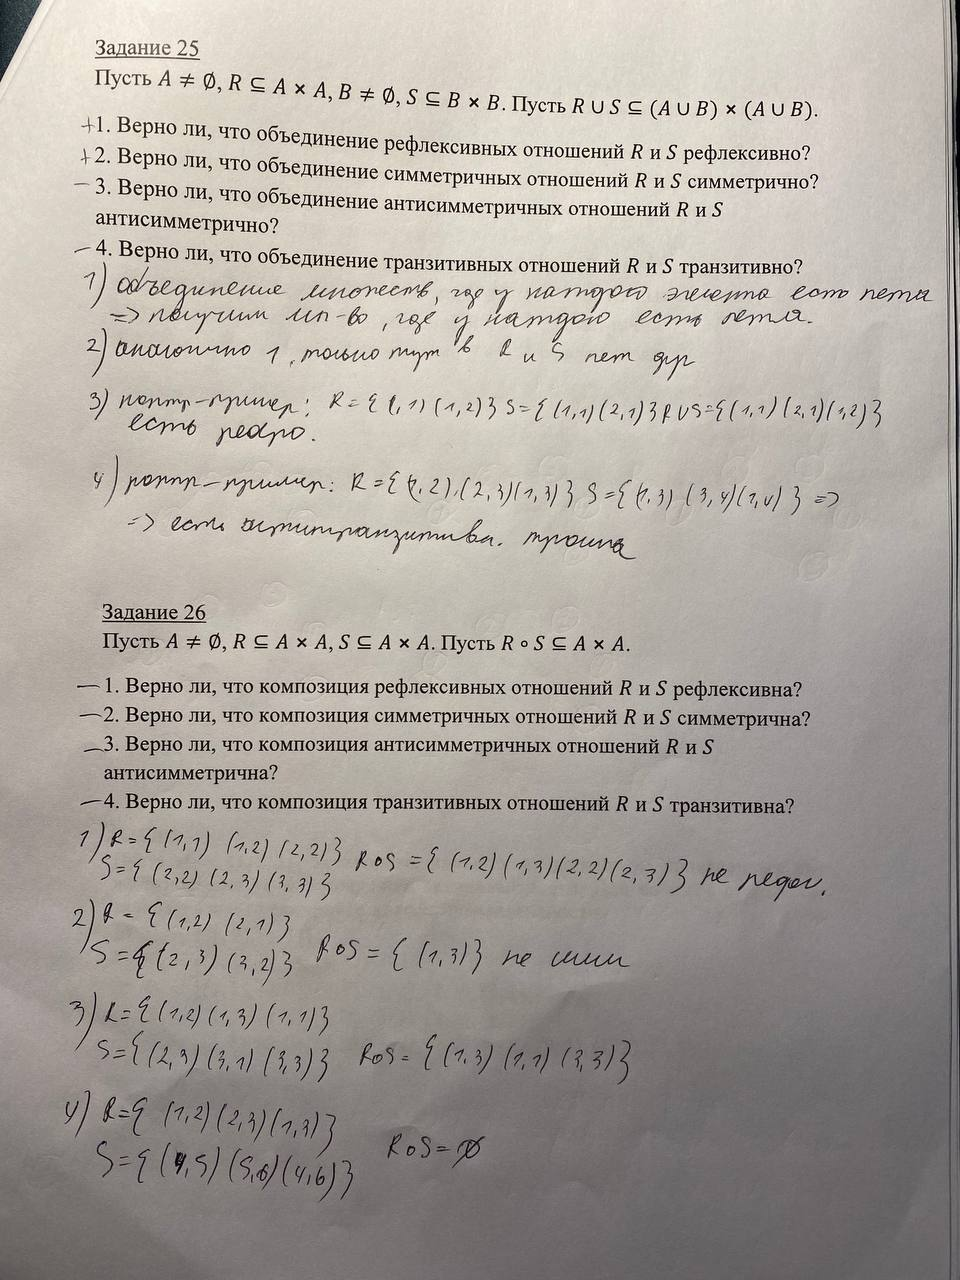 Задание 25
Пусть A ≠ ∅, R ⊆ A × A, B ≠ ∅, S ⊆ B × B. Пусть R ∪ S ⊆ (A ∪ B) × (A ∪ B).
+1. Верно ли, что объединение рефлексивных отношений R и S рефлексивно?
+2. Верно ли, что объединение симметричных отношений R и S симметрично?
– 3. Верно ли, что объединение антисимметричных отношений R и S
антисимметрично?
– 4. Верно ли, что объединение транзитивных отношений R и S транзитивно?
1) объединение множеств, где у каждого элемента есть петля
=> получим мн-во, где у каждого есть петля.
2) аналогично 1, только тут в R и S нет
3) контр-пример: R={(1,1)(1,2)} S={(1,1)(2,1)} R∪S={(1,1)(2,1)(1,2)}
есть ребро.
4) контр-пример: R={(1,2),(2,3)(1,3)} S={(1,3)(3,4)(1,4)} =>
=> есть антитранзитивн. тройка
Задание 26
Пусть A ≠ ∅, R ⊆ A × A, S ⊆ A × A. Пусть R ∘ S ⊆ A × A.
– 1. Верно ли, что композиция рефлексивных отношений R и S рефлексивна?
– 2. Верно ли, что композиция симметричных отношений R и S симметрична?
– 3. Верно ли, что композиция антисимметричных отношений R и S
антисимметрична?
– 4. Верно ли, что композиция транзитивных отношений R и S транзитивна?
1) R={(1,1) (1,2) (2,2)}
S={(2,2) (2,3) (3,3)} R∘S={(1,2)(1,3)(2,2)(2,3)} не рефл.
2) R={(1,2) (2,1)}
S={(2,3) (3,2)} R∘S={(1,3)} не сим
3) R={(1,2)(1,3)(1,1)}
S={(2,3)(3,1)(3,3)} R∘S={(1,3)(1,1)(3,3)}
4) R={(1,2)(2,3)(1,3)}
S={(4,5)(5,6)(4,6)} R∘S=∅